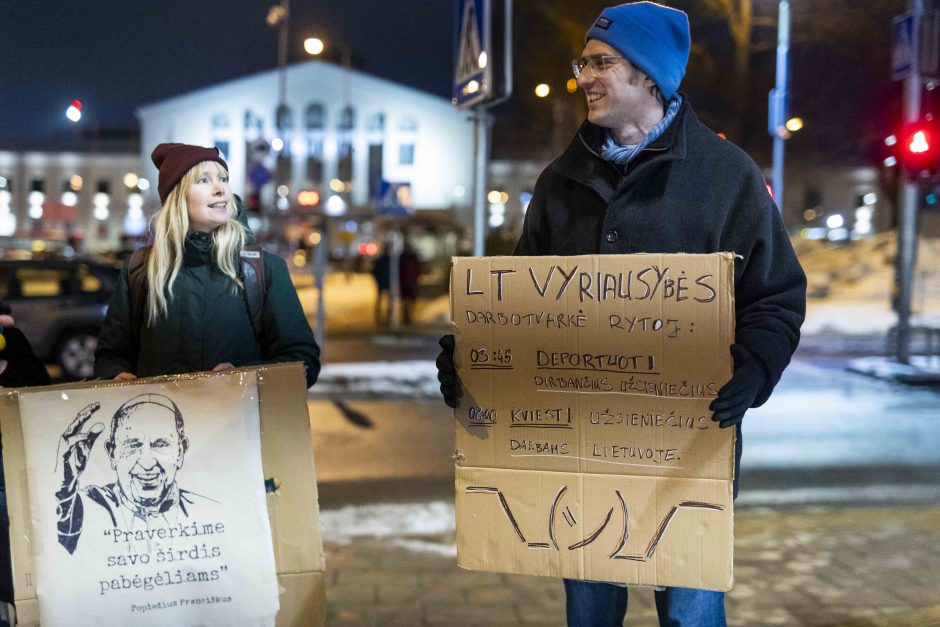 "Praverkime
savo širdis
pabėgėliams"
Popiežius Pranciškus
LT VYRIAUSYBĖS
DARBOTVARKĖ RYTOJ:
03:45 DEPORTUOTI
DIRBANČIUS UŽSIENIEČIUS
08:00 KVIESTI UŽSIENIEČIUS
DARBAMS LIETUVOJE.
¯\_(ツ)_/¯